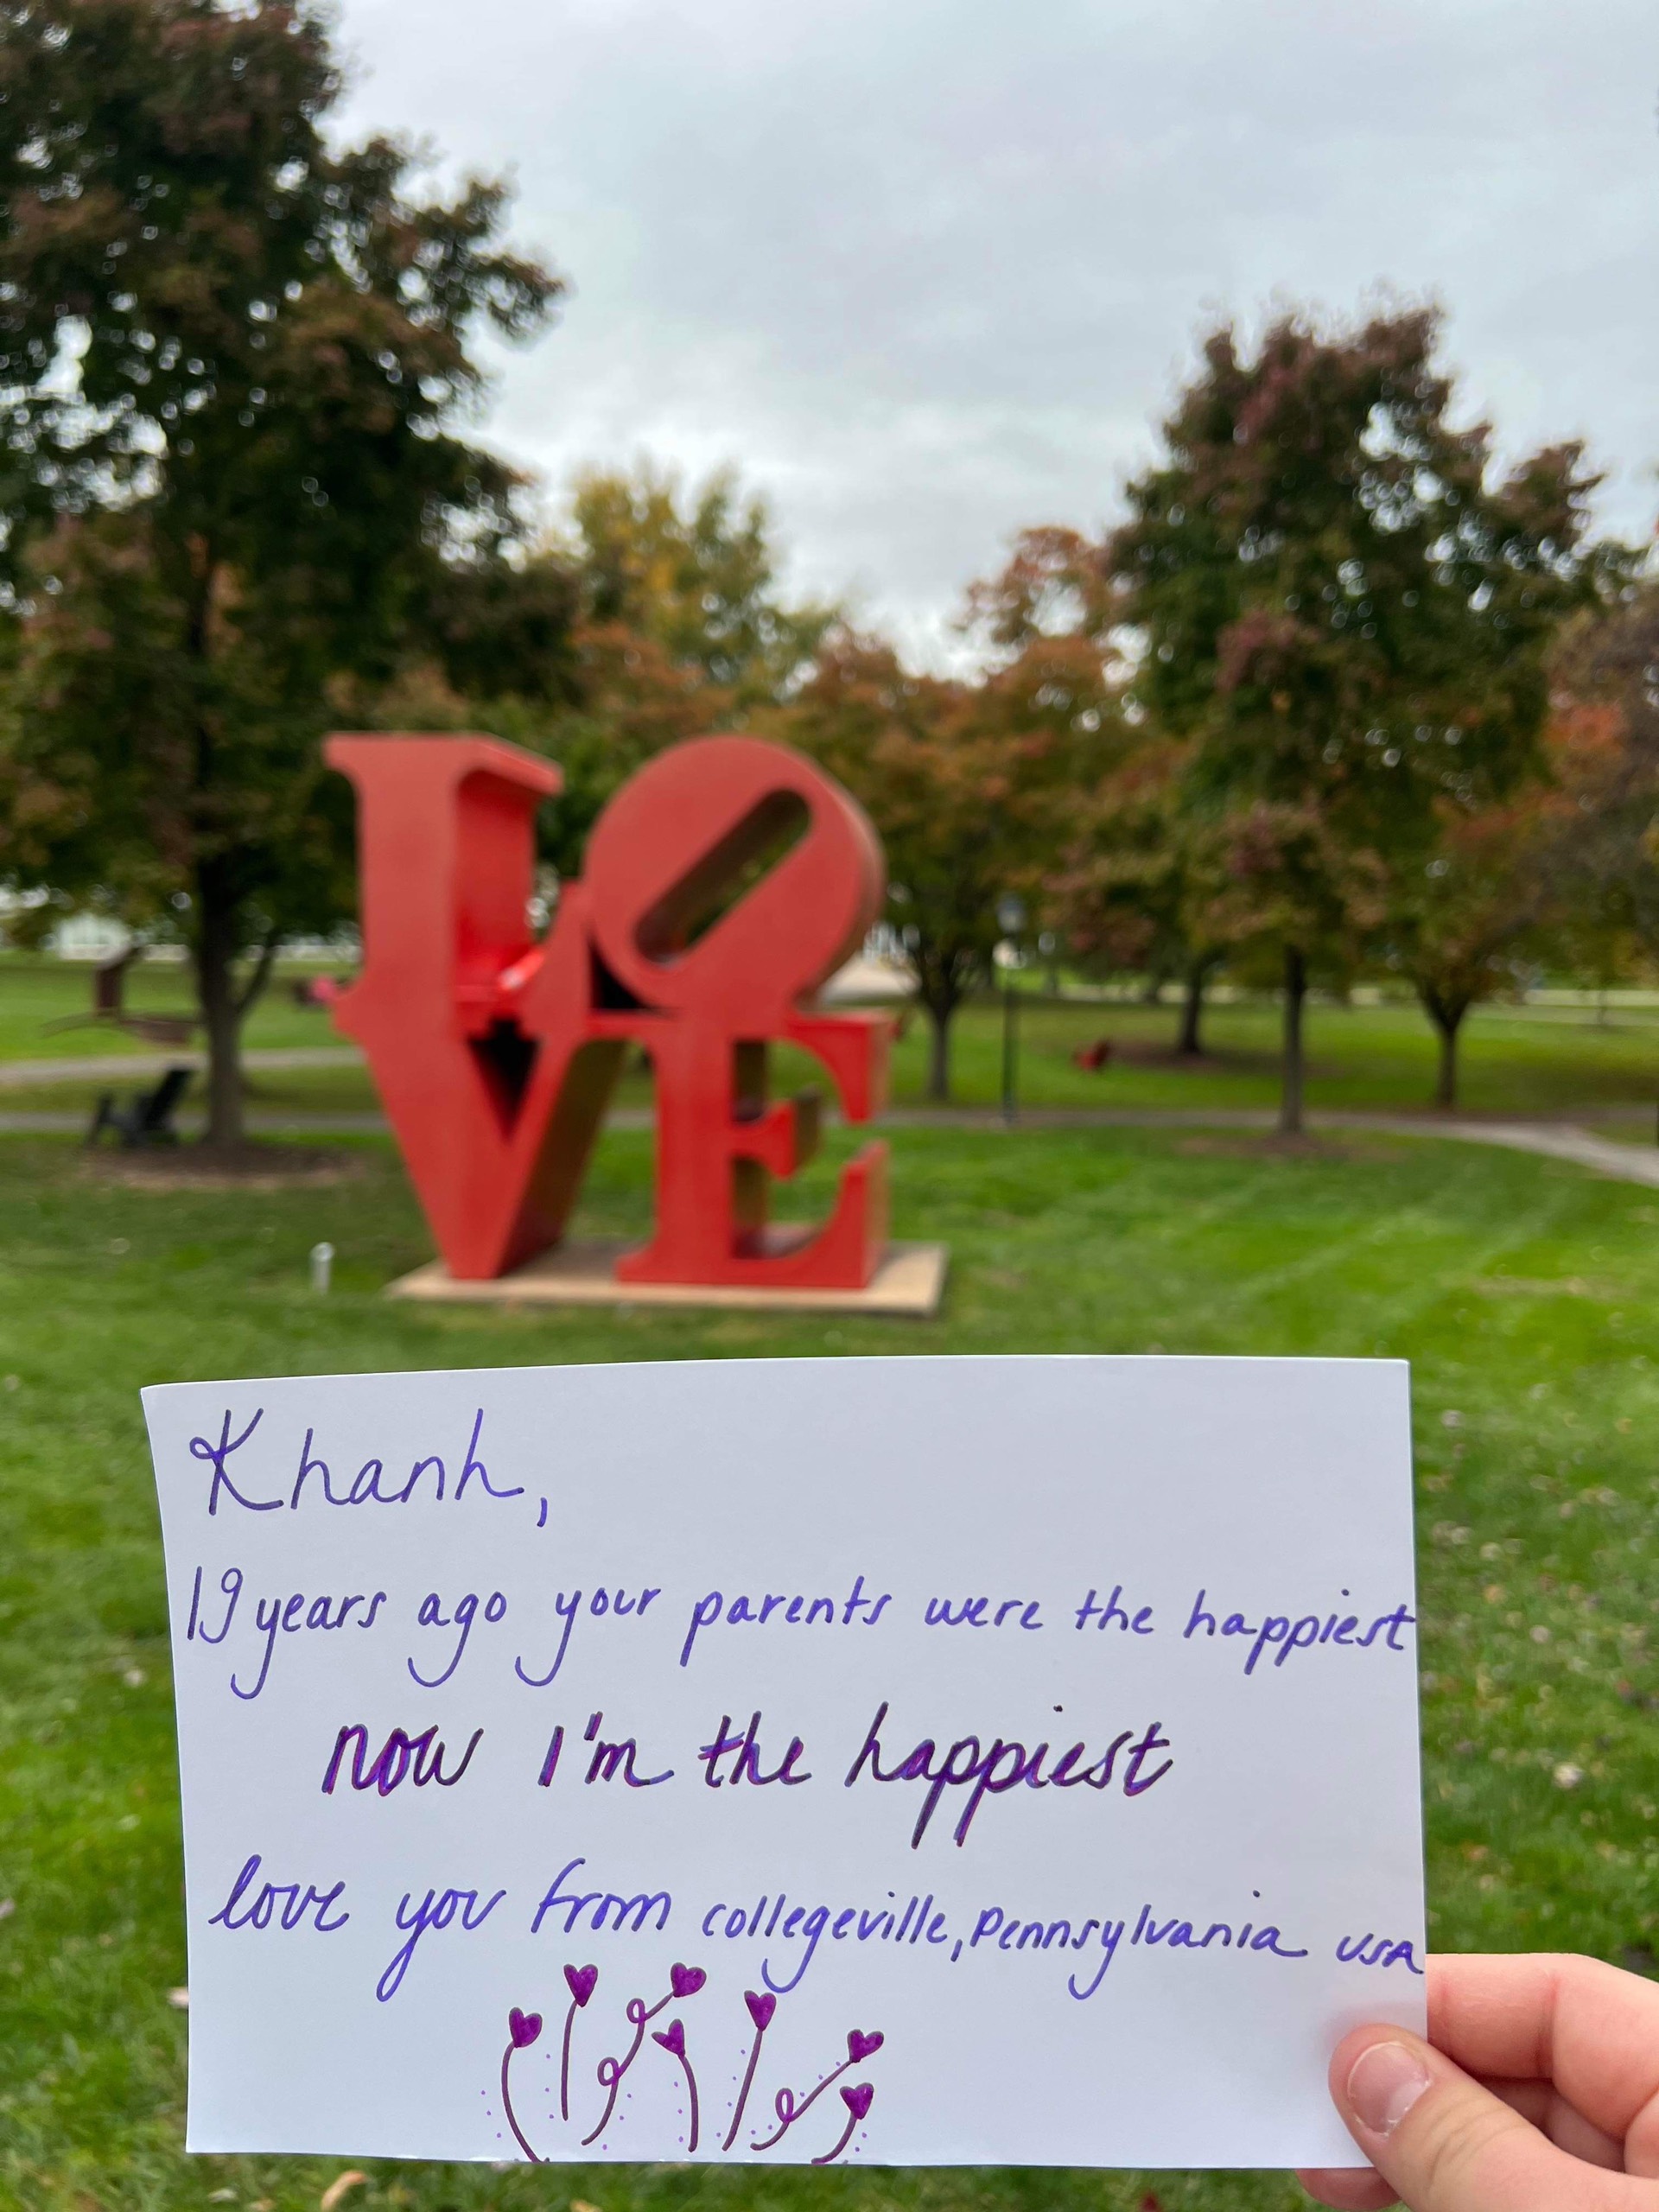 LO
VE
Khanh,
19 years ago your parents were the happiest
now I'm the happiest
love you from collegeville, Pennsylvania USA